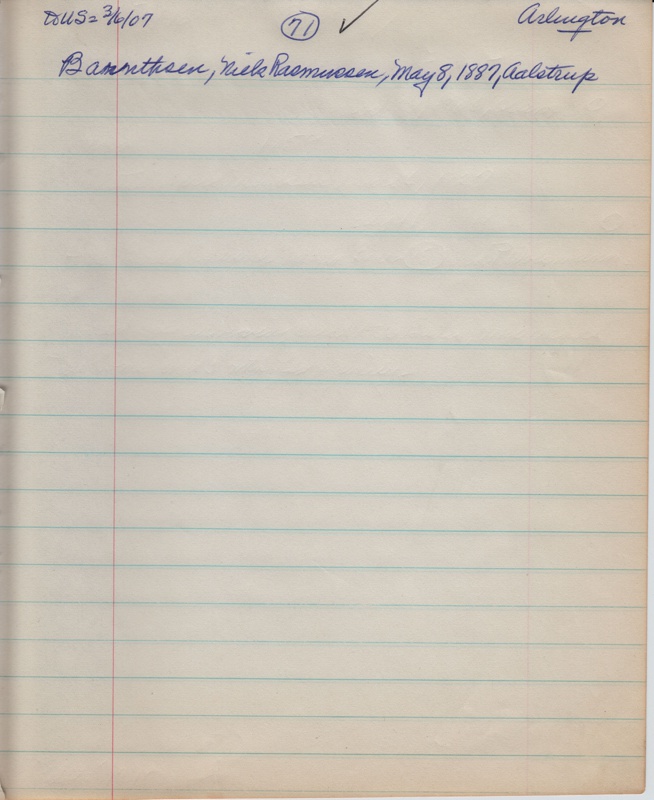 toUS= 3/6/07 71 ✓ Arlington
Niels Rasmussen, May 8, 1887, Aalstrup